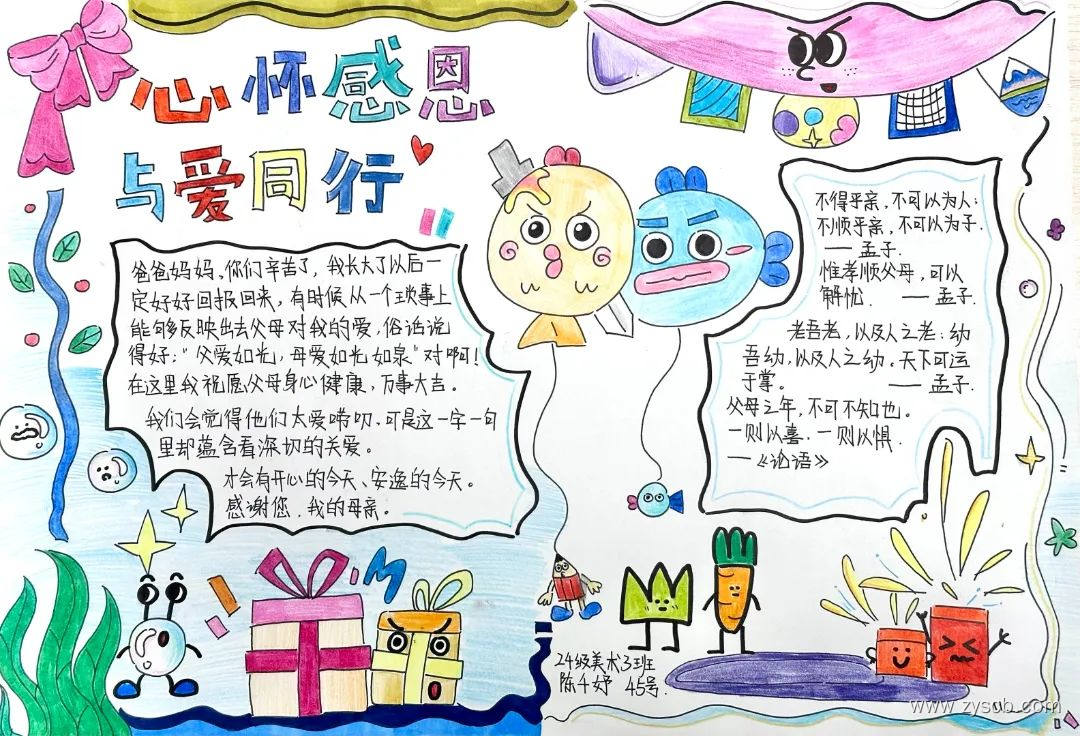 心怀感恩
与爱同行
爸爸妈妈、你们辛苦了，我长大了以后一
定好好回报回来，有时候从一个琐事上
能够反映出去父母对我的爱，俗话说
得好："父爱如光，母爱如光如泉"对啊！
在这里我祝愿父母身心健康，万事大吉。
我们会觉得他们太爱唠叨.可是这一字一句
里却蕴含着深切的关爱。
才会有开心的今天、安逸的今天。
感谢您.我的母亲。
不得乎亲，不可以为人；
不顺乎亲，不可以为子.
——孟子.
惟孝顺父母，可以
解忧. ——孟子.
老吾老，以及人之老；幼
吾幼，以及人之幼。天下可运
于掌。 ——孟子.
父母之年，不可不知也。
一则以喜.一则以惧.
—《论语》
24级美术3班
陈千妤 45号.
www.zysob.com